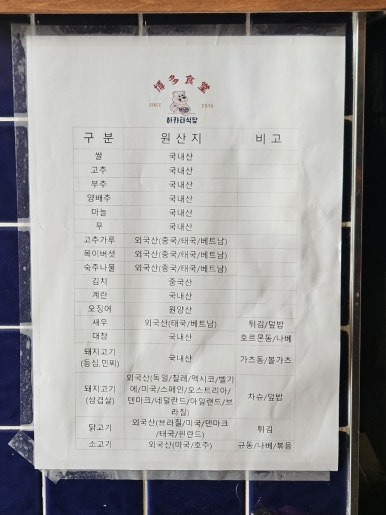 博多食堂
SINCE 2016
하카타식당
구 분 원 산 지 비 고
쌀 국내산
고추 국내산
부추 국내산
양배추 국내산
마늘 국내산
무 국내산
고추가루 외국산(중국/태국/베트남)
목이버섯 외국산(중국/태국/베트남)
숙주나물 외국산(중국/태국/베트남)
김치 중국산
계란 국내산
오징어 원양산
새우 외국산(태국/베트남) 튀김/덮밥
대창 국내산 호르몬동/나베
돼지고기
(등심,민찌) 국내산 가츠동/볼가츠
돼지고기
(삼겹살)
외국산(독일/칠레/멕시코/벨기
에/미국/스페인/오스트리아/
덴마크/네덜란드/아일랜드/브
라질)
차슈/덮밥
닭고기
외국산(브라질/미국/덴마크
/태국/핀란드)
튀김
소고기 외국산(미국/호주) 규동/나베/볶음